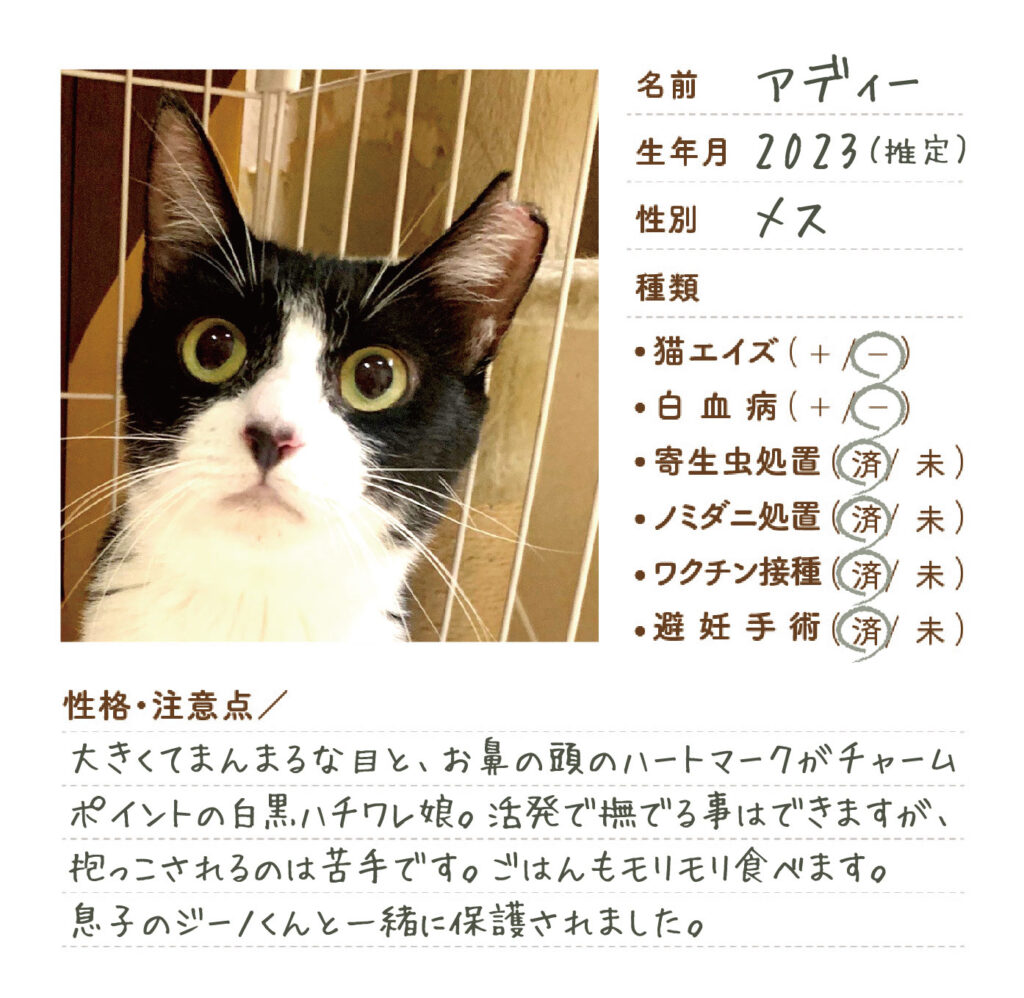 名前 アディー
生年月 2023(推定)
性別 メス
種類
•猫エイズ(+/−)
•白血病(+/−)
•寄生虫処置(済/未)
•ノミダニ処置(済/未)
•ワクチン接種(済/未)
•避妊手術(済/未)
性格・注意点/
大きくてまんまるな目と、お鼻の頭のハートマークがチャーム
ポイントの白黒ハチワレ娘。活発で撫でる事はできますが、
抱っこされるのは苦手です。ごはんもモリモリ食べます。
息子のジーノくんと一緒に保護されました。